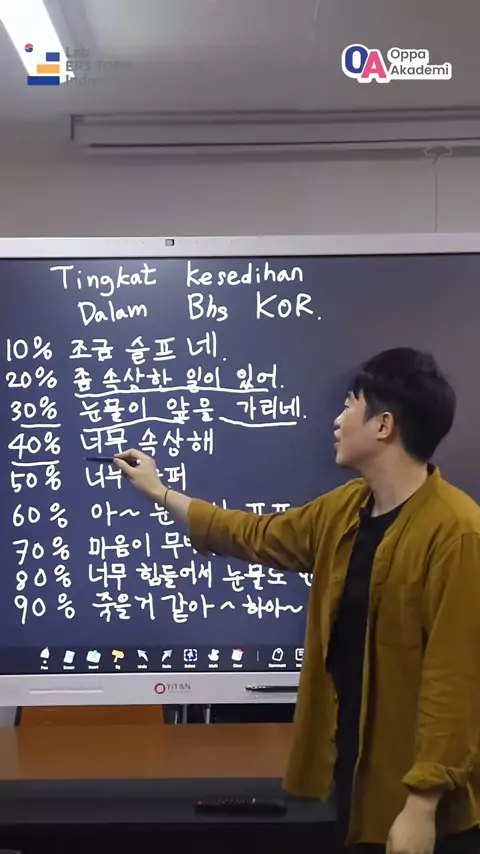 Lab
EPS TOPIK
OA Oppa
Akademi
Tingkat kesedihan
Dalam Bhs KOR.
10% 조금 슬프네.
20% 좀 속상한 일이 있어.
30% 눈물이 앞을 가리네.
40% 너무 속상해
50% 너무
60% 아~
70% 마음이
80% 너무 힘들어서 눈물도
90% 죽을거 같아~ 하아~
TITAN